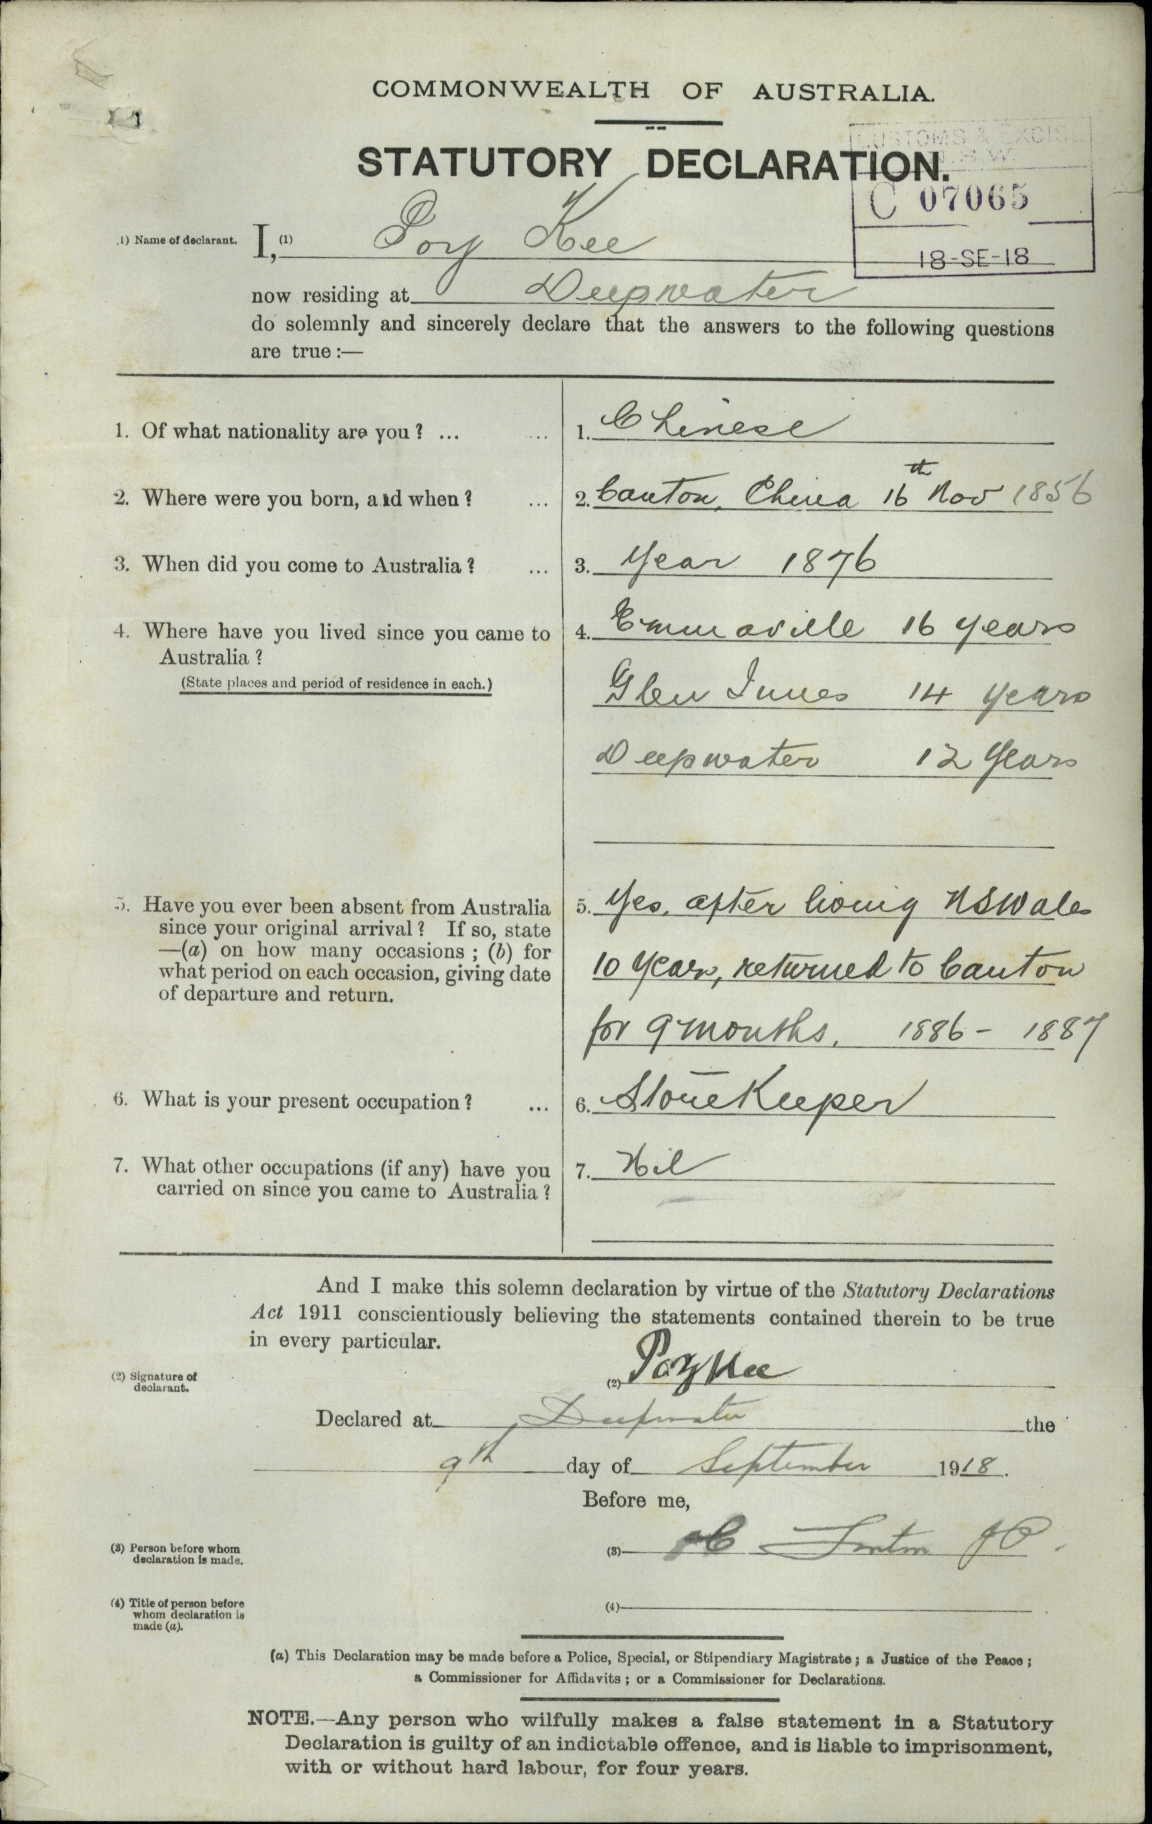 COMMONWEALTH OF AUSTRALIA.
STATUTORY DECLARATION.
CUSTOMS & EXCISE
N.S.W.
C 07065
18-SE-18
(1) Name of declarant. I,(1) Poy Kee
now residing at Deepwater
do solemnly and sincerely declare that the answers to the following questions
are true :—
1. Of what nationality are you ? ... ... 1. Chinese
2. Where were you born, and when ? ... 2. Canton, China 16th Nov 1856
3. When did you come to Australia ? ... 3. Year 1876
4. Where have you lived since you came to 4. Emmaville 16 years
Australia ?
(State places and period of residence in each.)
Glen Innes 14 years
Deepwater 12 Years
5. Have you ever been absent from Australia 5. Yes, after living NSWales
since your original arrival ? If so, state
—(a) on how many occasions ; (b) for 10 Years, returned to Canton
what period on each occasion, giving date
of departure and return.
for 9 months, 1886 - 1887
6. What is your present occupation ? ... 6. StoreKeeper
7. What other occupations (if any) have you 7. Nil
carried on since you came to Australia ?
And I make this solemn declaration by virtue of the Statutory Declarations
Act 1911 conscientiously believing the statements contained therein to be true
in every particular.
(2) Signature of
declarant.
(2) Poy Kee
Declared at Deepwater the
9th day of September 1918.
Before me,
(3) Person before whom
declaration is made.
(3) JP.
(4) Title of person before
whom declaration is
made (a).
(4)
(a) This Declaration may be made before a Police, Special, or Stipendiary Magistrate ; a Justice of the Peace ;
a Commissioner for Affidavits ; or a Commissioner for Declarations.
NOTE.—Any person who wilfully makes a false statement in a Statutory
Declaration is guilty of an indictable offence, and is liable to imprisonment,
with or without hard labour, for four years.